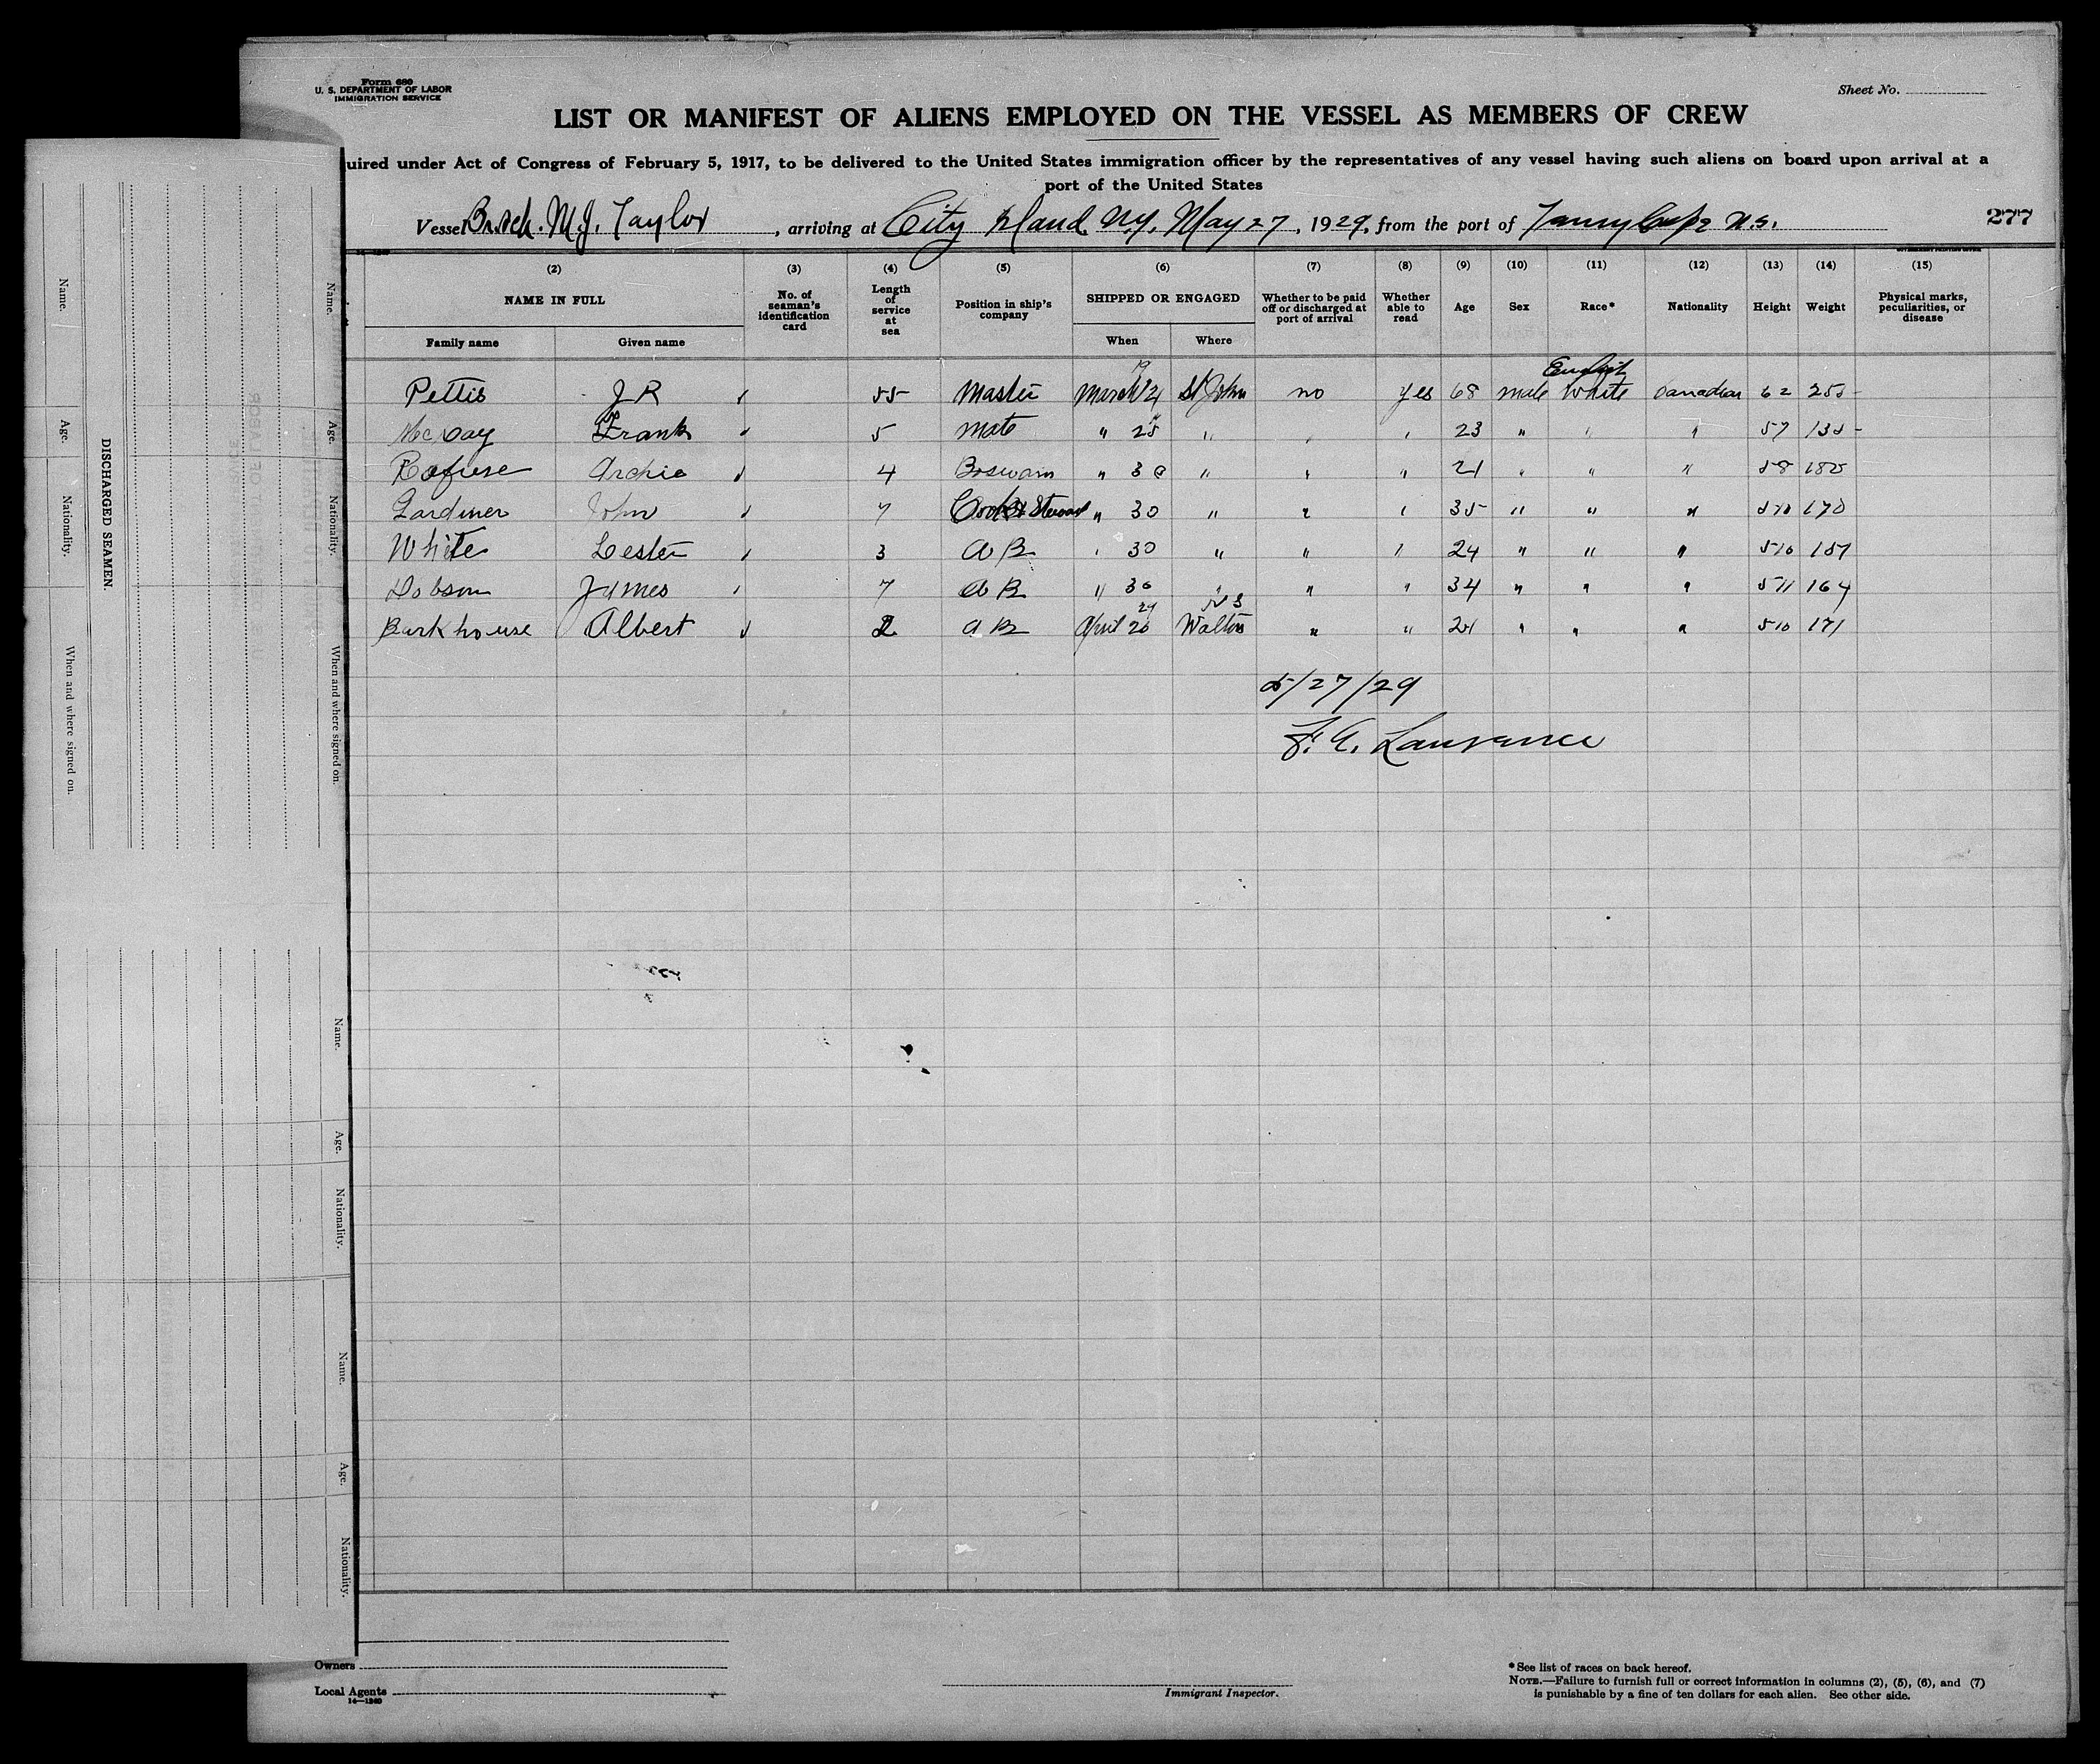 Form 680
U. S. DEPARTMENT OF LABOR
IMMIGRATION SERVICE
Sheet No.
LIST OR MANIFEST OF ALIENS EMPLOYED ON THE VESSEL AS MEMBERS OF CREW
uired under Act of Congress of February 5, 1917, to be delivered to the United States immigration officer by the representatives of any vessel having such aliens on board upon arrival at a
port of the United States
Vessel Br. Sch. M.J. Taylor, arriving at City Island N.Y. May 27, 1929, from the port of N.S.
277
(2) (3) (4) (5) (6) (7) (8) (9) (10) (11) (12) (13) (14) (15)
NAME IN FULL
Family name
Given name
No. of seaman's identification card
Length of service at sea
Position in ship's company
SHIPPED OR ENGAGED
When
Where
Whether to be paid off or discharged at port of arrival
Whether able to read
Age
Sex
Race*
Nationality
Height
Weight
Physical marks, peculiarities, or disease
English
Pettis J R 55 Master March St John no yes 68 male White Canadian 6 2 255
McKay Frank 5 mate " 25 " " " 23 " " " 5 7 135
Rafuse Archie 4 Boswain " 30 " " " 21 " " " 5 8 180
Gardiner John 7 Cook & Steward " 30 " " " 35 " " " 5 10 170
White Lester 3 A B " 30 " " " 24 " " " 5 10 157
Dobson James 7 A B " 30 " " " 34 " " " 5 11 164
29 N S
Barkhouse Albert 2 A B April 20 Walton " " 21 " " " 5 10 171
5/27/29
F. A. Lawrence
DISCHARGED SEAMEN.
Name.
Age.
Nationality.
When and where signed on.
Name.
Age.
Nationality.
When and where signed on.
Name.
Age.
Nationality.
Name.
Age.
Nationality.
Owners
Local Agents
14—1240
Immigrant Inspector.
*See list of races on back hereof.
NOTE.—Failure to furnish full or correct information in columns (2), (5), (6), and (7)
is punishable by a fine of ten dollars for each alien. See other side.